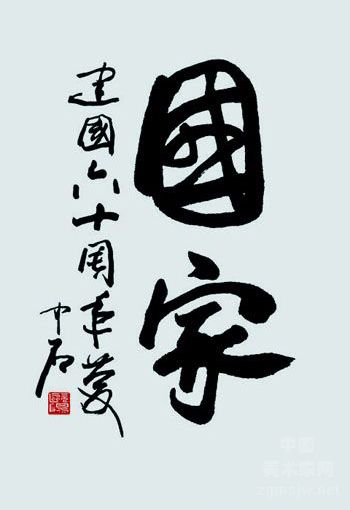 國家
建國六十周年慶
中石
中国
美术家网
zgmsjw.net